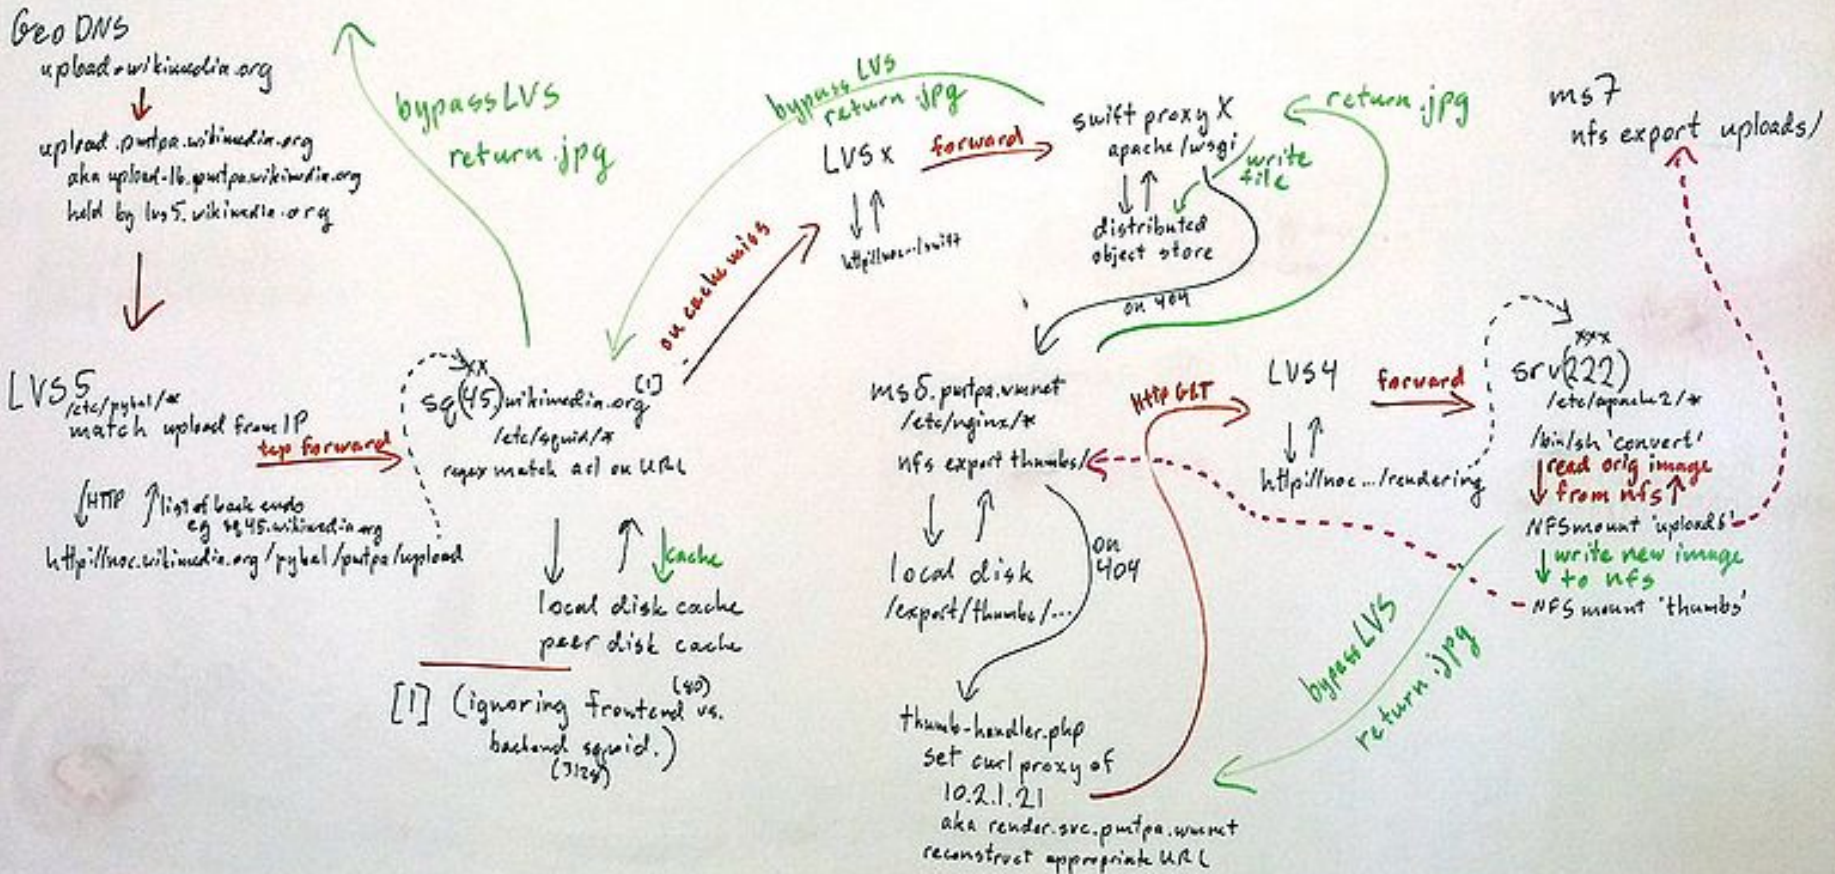 GeoDNS
upload.wikimedia.org
upload.pmtpa.wikimedia.org
aka upload-lb.pmtpa.wikimedia.org
held by lvs5.wikimedia.org
LVS5
/etc/pybal/*
match upload from IP
tcp forward
HTTP
list of back ends
eg sq45.wikimedia.org
http://noc.wikimedia.org/pybal/pmtpa/upload
bypass LVS
return .jpg
xx
sq(45)wikimedia.org [1]
/etc/squid/*
regex match acl on URL
cache
local disk cache
peer disk cache
[1] (ignoring frontend vs.
(80)
backend squid.)
(3128)
on cache miss
bypass LVS
return .jpg
LVSx
forward
http://noc.../swift
swift proxy X
apache/wsgi
write
file
distributed
object store
return .jpg
on 404
ms5.pmtpa.wmnet
/etc/nginx/*
nfs export thumbs/
local disk
/export/thumbs/...
on
404
thumb-handler.php
set curl proxy of
10.2.1.21
aka render.svc.pmtpa.wmnet
reconstruct appropriate URL
HTTP GET
LVS4
forward
http://noc.../rendering
xxx
srv(222)
/etc/apache2/*
/bin/sh 'convert'
read orig image
from nfs
NFS mount 'uploads'
write new image
to nfs
NFS mount 'thumbs'
bypass LVS
return .jpg
ms7
nfs export uploads/